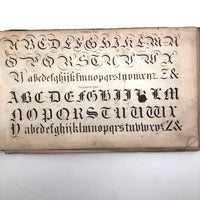 A B C D E F G H I K L M N
O P Q R S T U V W X
Y abcdefghijklmnopqrstuvwxyz. Z &
A B C D E F G H I J K L M
N O P Q R S T U W X
Y abcdefghijklmnopqrstuvwxyz Z &